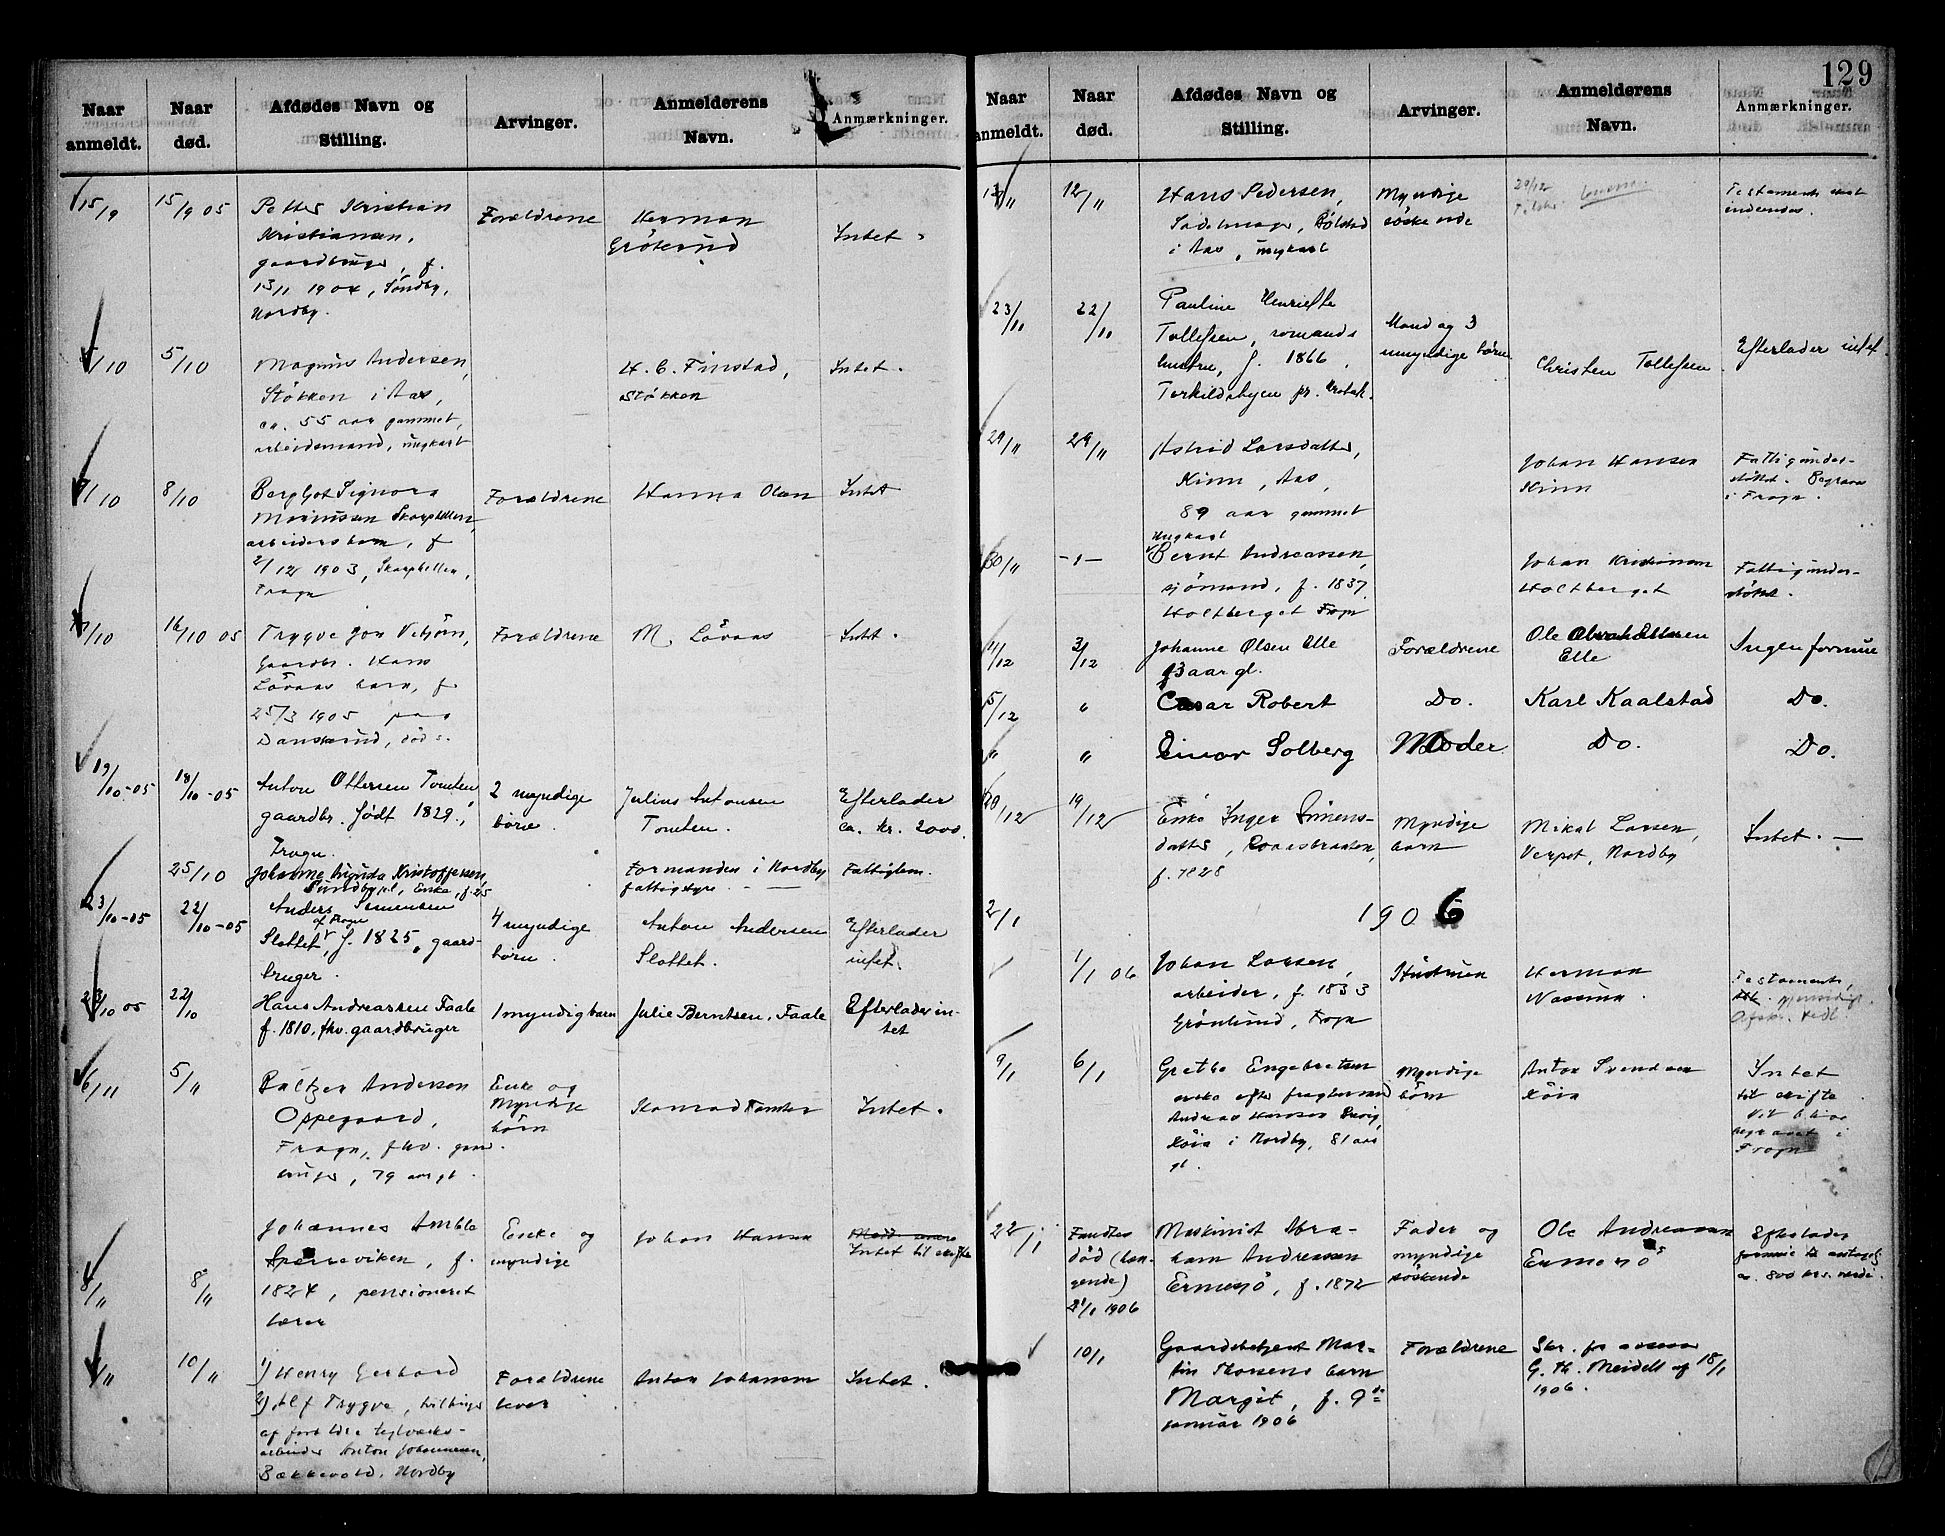 129
Naar anmeldt.
Naar død.
Afdødes Navn og Stilling.
Arvinger.
Anmelderens Navn.
Anmærkninger.
15/9
15/9 05
Petter Kristian
Kristiansen,
gaardbruger, f.
13/11 1904, Sundby,
Nordby.
Forældrene
Herman
Grøterud
Intet.
/10
5/10
Magnus Andersen,
Støkken i Aas,
ca. 55 aar gammel,
arbeidsmand, ungkarl
H. C. Finstad,
Støkken
Intet.
/10
8/10
Bergljot Signora
Marinussen Skarphellen,
arbeidersbarn, f
2/12 1903, Skarphellen,
Frogn
Forældrene
Hanna Olsen
Intet
17/10
16/10 05
Trygve Jon
gaardbr. Hans
Løvaas barn, f.
25/3 1905 paa
Forældrene
M. Løvaas
Intet.
19/10-05
18/10-05
Anton Ottersen Tomten
gaardbr. født 1829.,
Frogn.
2 myndige
børn.
Julius Antonsen
Tomten.
Efterlader
ca. kr. 2000.
25/10
Johanne Kristoffersen
Sundby, Enke, f.
Formanden i Nordby
fattigstyre.
Fattiglem.
23/10-05
22/10-05
Anders Simensen
af Frogn
Slottet, f. 1825, gaard-
bruger.
4 myndige
børn.
Anton Andersen
Slottet.
Efterlader
intet.
23/10 05
22/10
Hans Andreassen Faale
f. 1810, fhv. gaardbruger
1 myndig barn
Julie Berntsen, Faale
Efterlader in-
tet
6/11
5/11
Baltzer Andersen
Oppegaard,
Frogn, fhv. gaard-
bruger, 79 aar gl.
Enke og
Myndige
børn
Konrad Tomter
Intet.
8/11
8/11
Johannes Amble
Sparreviken, f.
1824, pensioneret
lærer
Enke og
myndige
Johan Hansen
Intet til skifte
/11
10/11
1) Henry Gerhard
2) Alf Trygve, tvillinger
af forældre teglverks-
arbeider Anton Johannesen,
Bækkevold, Nordby
Forældrene
lever
Anton Johansen
Intet.
Naar anmeldt.
Naar død.
Afdødes Navn og Stilling.
Arvinger.
Anmelderens Navn.
Anmærkninger.
13/11
12/11
Hans Pedersen,
Sadelmager, Bølstad
i Aas, ungkarl
Myndige
søskende
20/12
Testamente
indendes.
23/11
22/11
Pauline Henriette
Tollefsen, sømands
hustru, f. 1866,
Torkildsbyen pr. Drøbak.
Mand og 3
umyndige børn
Christen Tollefsen
Efterlader intet.
29/11
29/11
Astrid Larsdatter,
Kinn, Aas,
89 aar gammel
Johan Hansen
Kinn
Fattigunder-
støttet. Begraves
i Frogn.
30/11
-"-
Ungkarl
Bernt Andreassen,
sjømand, f. 1837
Holtberget Frogn
Johan Kristiansen
Holtberget
Fattigunder-
støttet.
4/12
3/12
Johanne Olsen Elle
13 aar gl.
Forældrene
Ole
Elle
Ingen formue
5/12
"
Cæsar Robert
Do.
Karl Kaalstad
Do.
"
"
Einar Solberg
Moder
Do.
Do.
20/12
19/12
Enke Inger Simens-
datter,
f. 1828
Myndige
barn
Mikal Larsen,
Verpet, Nordby
Intet. —
2/1
1906
1/1 06
Johan Larsen,
arbeider, f. 1833
Grønlund, Frogn
Hustruen
Herman
Nassuna.
Testamente,
Afskr. vedl.
9/1
6/1
Grethe Engebretsen
enke efter fragtemand
Andreas Hansen
Køia i Nordby, 81 aar
gl.
Myndige
børn
Anton Svendsen
Køia
Intet
til skifte
Vil blive
begravet i
Frogn
22/1
Fundtes
død (hæn-
gende)
21/1 1906
Maskinist Abra-
ham Andreassen
Ermesjø, f. 1872
Fader og
myndige
søskende
Ole Andreassen
Ermesjø
Efterlader
formue antagelig
ca. 800 krs. verdi.
10/1
Gaardsbestyrer Mar-
tin Thorsens barn
Margit, f. 9de
januar 1906
Forældrene
Skr. fra
G. Th. Meidell af 18/1
1906.